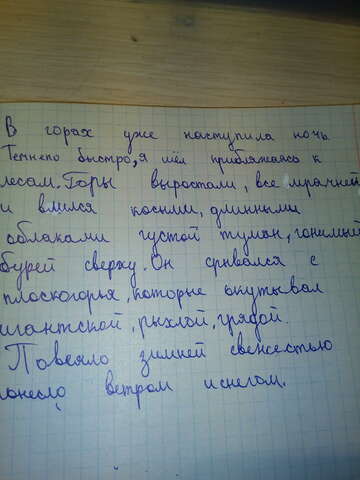 В горах уже наступила ночь
Темнело быстро, я шёл приближаясь к
лесам. Горы выростали, все мрачней
и вмлся косыми, длинными
облаками густой туман, гонимый
бурей сверху. Он срывался с
плоскогорья, которые окутывал
игантской, рыхлой, грядой.
Повеяло зимней свежестью
онесло ветром и снегом.